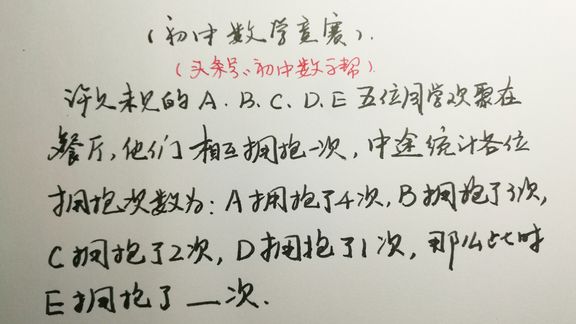 (初中数学竞赛).
(头条号:初中数学帮)
许久未见的A.B.C.D.E五位同学欢聚在
餐厅,他们相互拥抱一次,中途统计各位
拥抱次数为:A拥抱了4次,B拥抱了3次,
C拥抱了2次,D拥抱了1次,那么此时
E拥抱了__次.